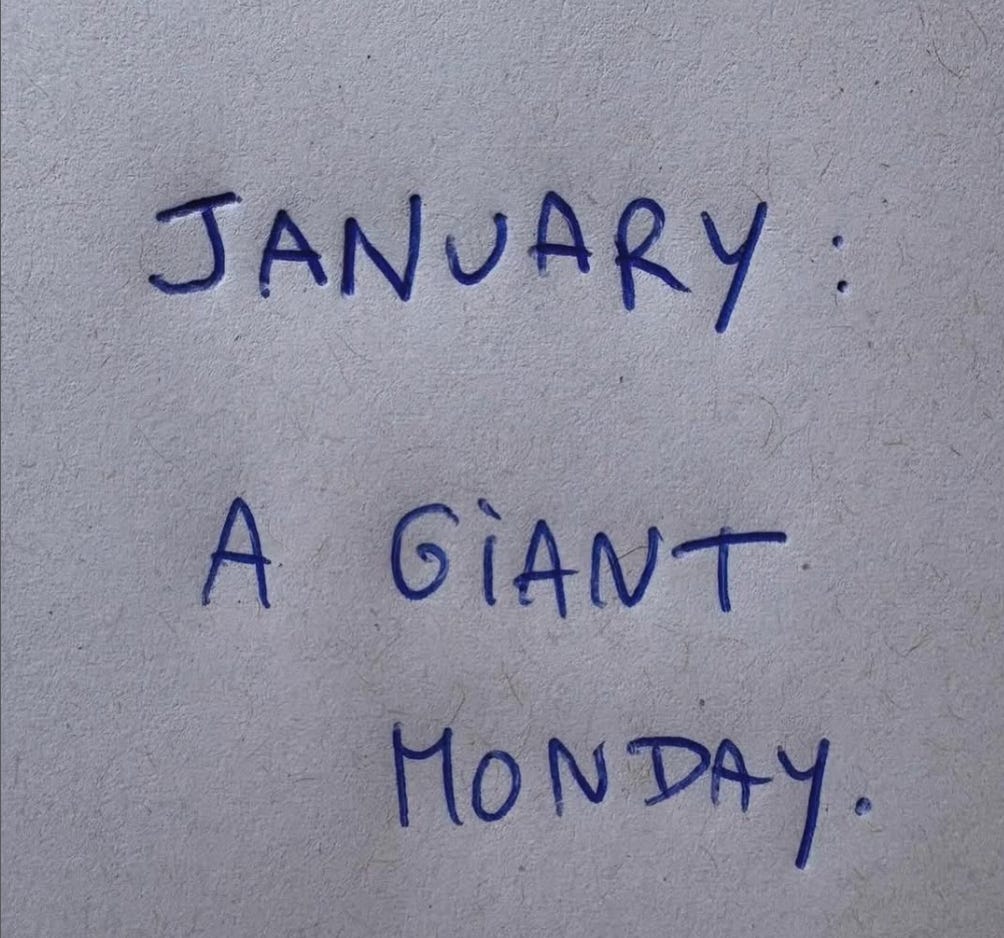 JANUARY:
A GiANT
MONDAY.